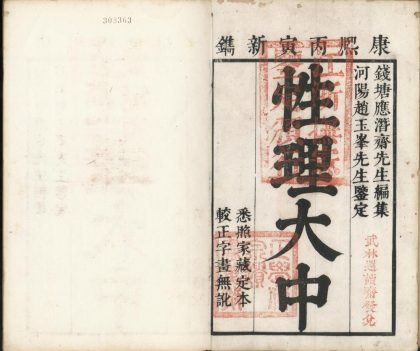 康熙丙寅新鐫
錢塘應潛齋先生編集
河陽趙玉峯先生鑒定
性理大中
悉照家藏定本
較正字畫無訛
武林
發兌
303363